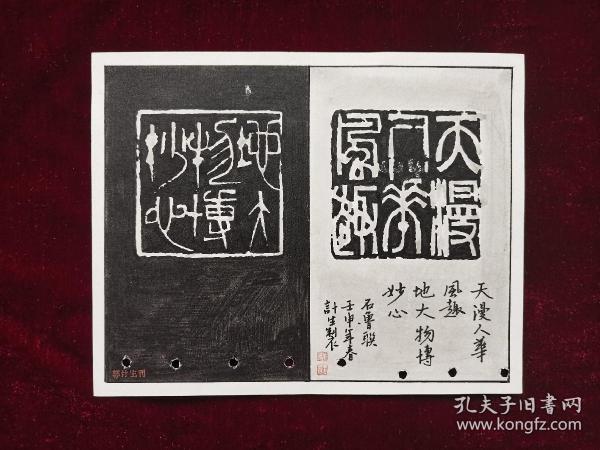 天漫
人華
風趣
地大
物博
妙心
天漫人華
風趣
地大物博
妙心
石魯聯
壬申年春
計生製
孔夫子旧书网
www.kongfz.com